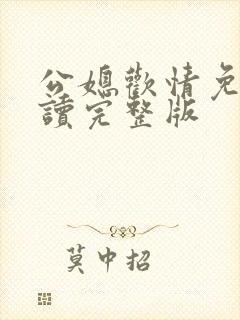 公媳歡情免
讀完整版
莫中招